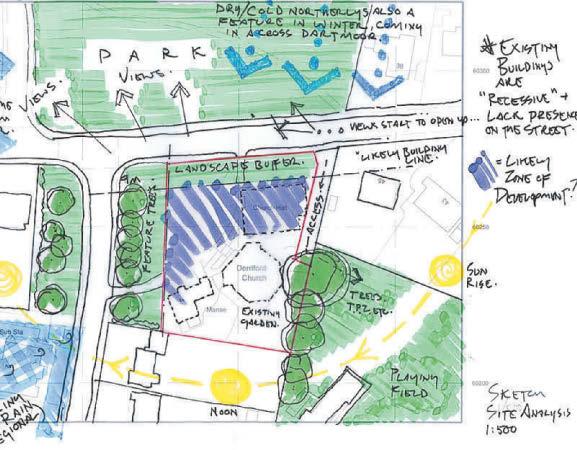 DRY/COLD NORTHERLYS ALSO A
FEATURE IN WINTER, COMING
IN ACROSS DARTMOOR.
PARK
VIEWS.
VIEWS.
* EXISTING
BUILDINGS
ARE
"RECESSIVE" +
LACK PRESENCE
ON THE STREET.
VIEWS START TO OPEN UP...
LANDSCAPE BUFFER.
"LIKELY BUILDING
LINE.
= LIKELY
ZONE OF
DEVELOPMENT?
FEATURE TREES
ACCESS
Church Hall
Derriford
Church
Manse
EXISTING
GARDEN.
TREES
T.P.Z ETC.
SUN
RISE.
60250
60200
Sub Sta
RAIN
PLAYING
FIELD
NOON
SKETCH
SITE ANALYSIS
1:500